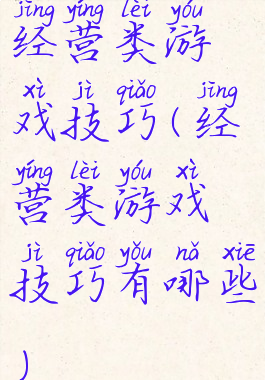 jīng yíng lèi yóu
经营类游
xì jì qiǎo jīng
戏技巧(经
yíng lèi yóu xì
营类游戏
jì qiǎo yǒu nǎ xiē
技巧有哪些
)